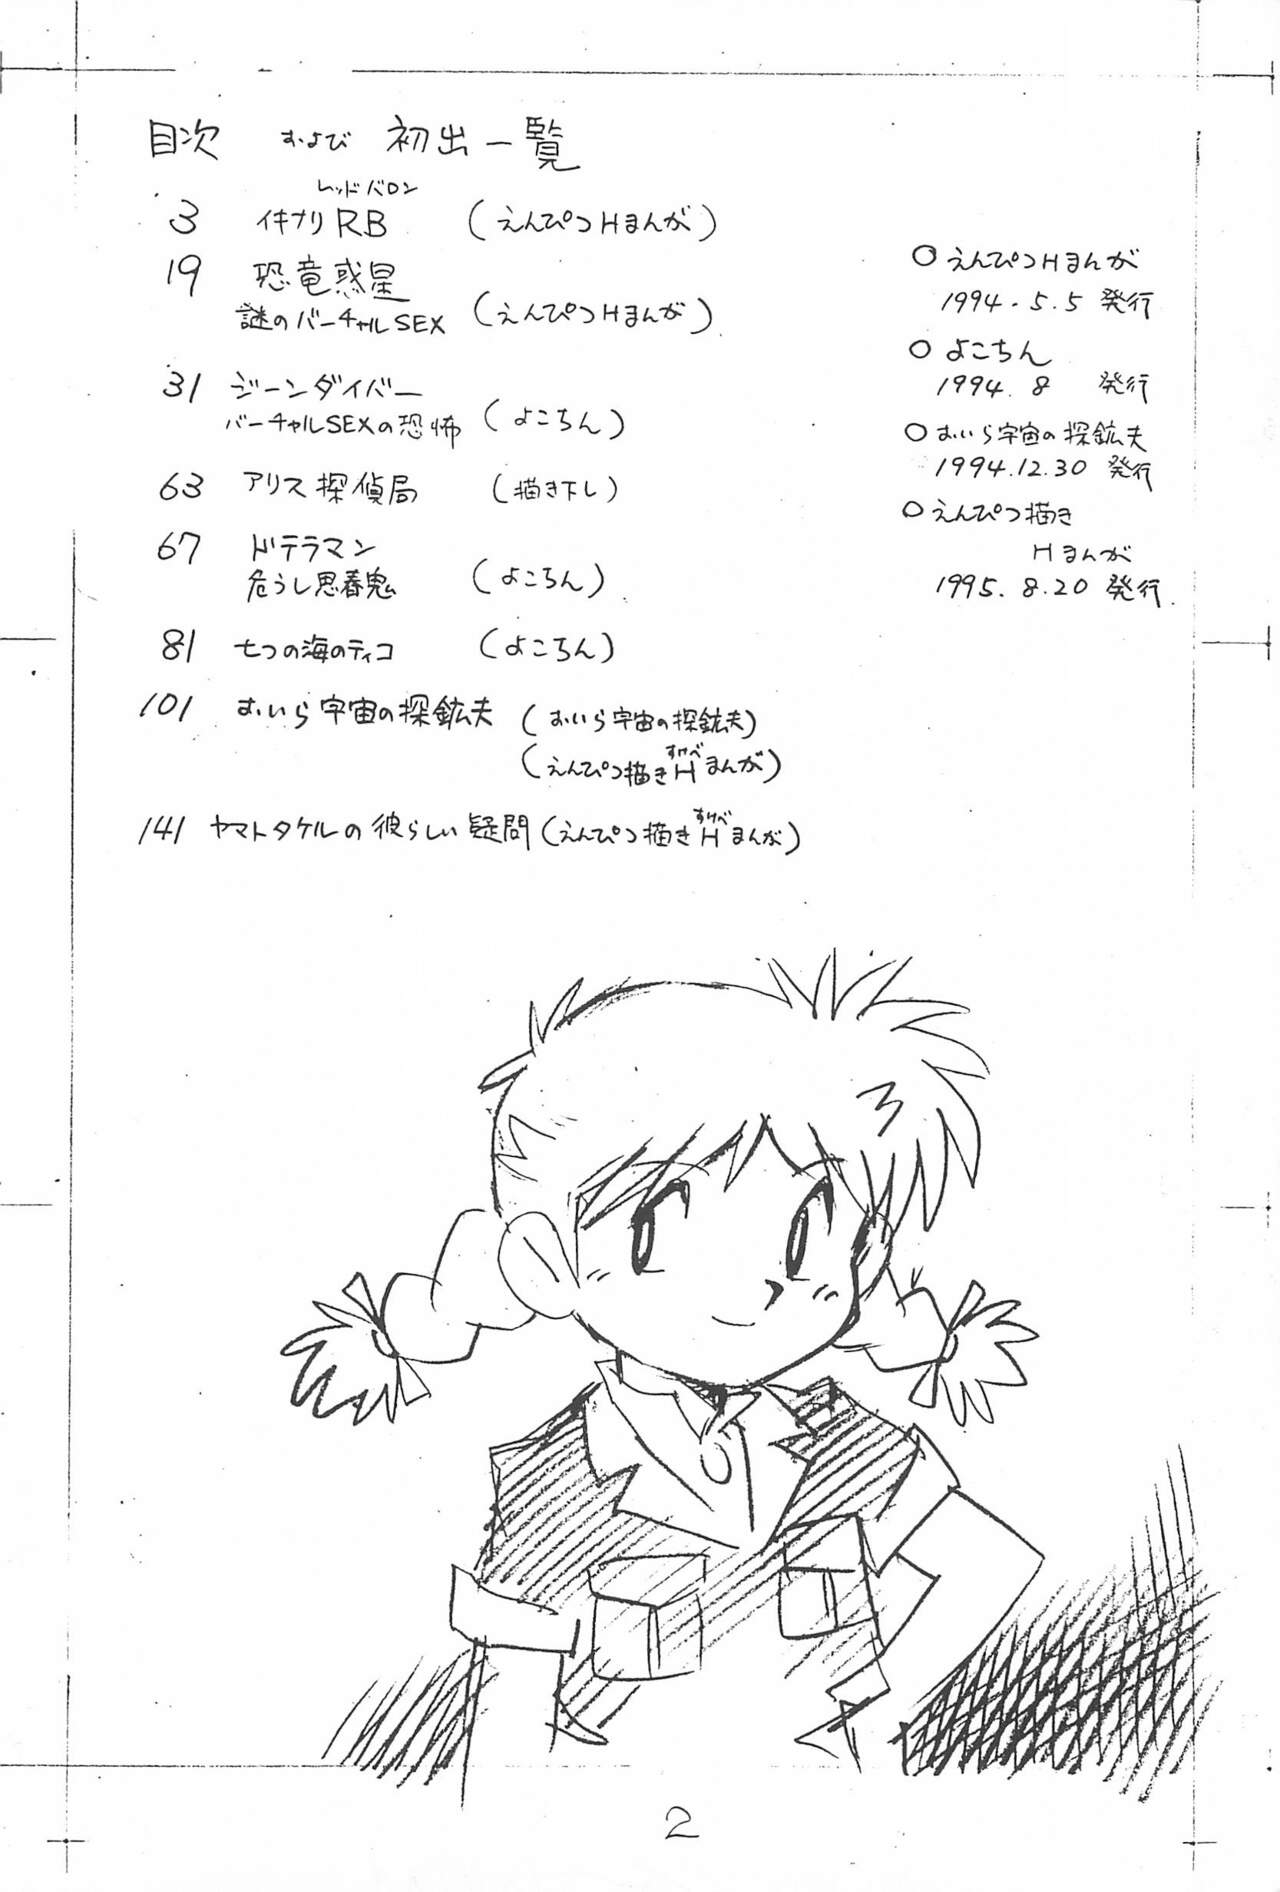 目次 および 初出一覧
レッドバロン
3 イキナリRB (えんぴつHまんが)
19 恐竜惑星
謎のバーチャルSEX (えんぴつHまんが)
31 ジーンダイバー
バーチャルSEXの恐怖 (よこちん)
63 アリス探偵局 (描き下し)
67 ドテラマン
危うし思春鬼 (よこちん)
81 七つの海のティコ (よこちん)
101 おいら宇宙の探鉱夫 (おいら宇宙の探鉱夫)
すけべ
(えんぴつ描きHまんが)
すけべ
141 ヤマトタケルの彼らしい疑問 (えんぴつ描きHまんが)
○えんぴつHまんが
1994.5.5 発行
○よこちん
1994.8 発行
○おいら宇宙の探鉱夫
1994.12.30 発行
○えんぴつ描き
Hまんが
1995.8.20 発行
2